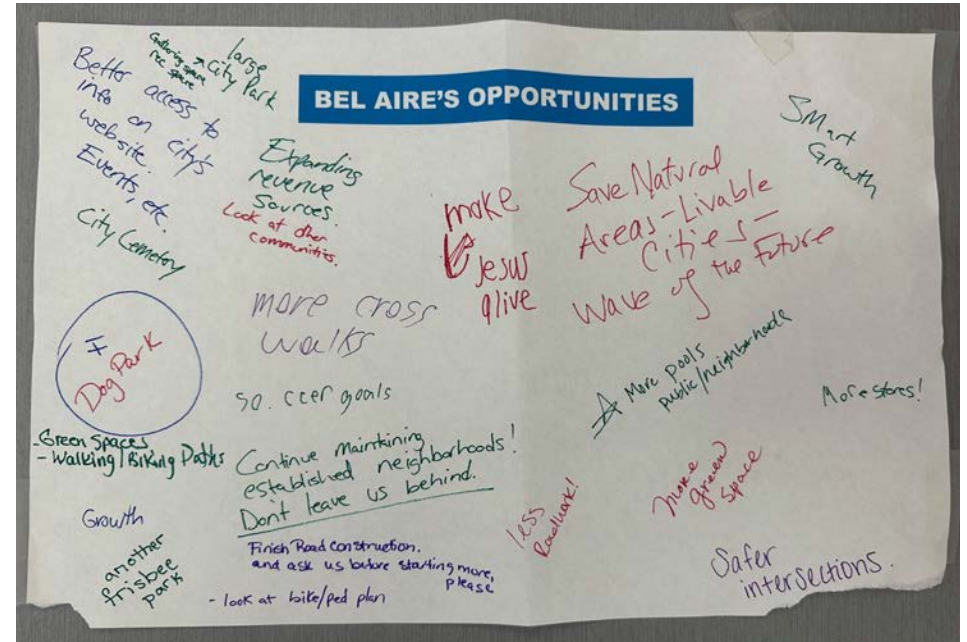 BEL AIRE'S OPPORTUNITIES
Gathering space
rec space
large
City Park
Better access to
info on city's
website.
Events, etc.
City Cemetery
Expanding
revenue
Sources.
Look at other
communities.
make
Jesus
alive
Save Natural
Areas-Livable
Cities-
Wave of the Future
Smart
Growth
more cross
walks
Dog Park
so.ccer goals
More pools
public/neighborhoods
More stores!
-Green Spaces
-Walking/Biking Paths
Continue Maintaining
established neighborhoods!
Don't leave us behind.
Growth
another
frisbee
park
Finish Road Construction.
and ask us before starting more,
please
- look at bike/ped plan
less
Roadwork!
more
green
space
Safer
intersections.